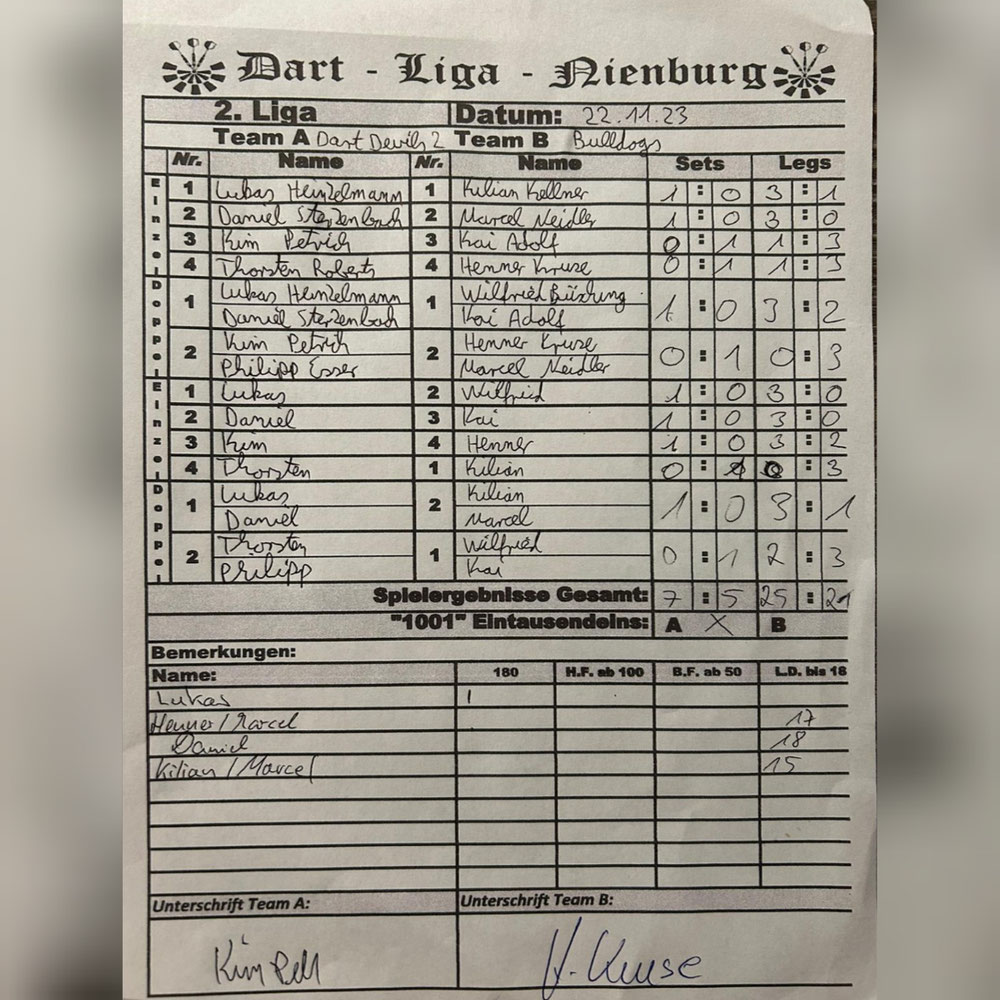 Dart - Liga - Nienburg
2. Liga Datum: 22.11.23
Team A Dart Devils 2 Team B Bulldogs
Nr. Name Nr. Name Sets Legs
Einzel
1 Lukas Heinzelmann 1 Kilian Kellner 1 : 0 3 : 1
2 Daniel Sterzenbach 2 Marcel Neidler 1 : 0 3 : 0
3 Kim Petrich 3 Kai Adolf 0 : 1 1 : 3
4 Thorsten Roberts 4 Henner Kruse 0 : 1 1 : 3
Doppel
1 Lukas Heinzelmann 1 Wilfried Büshung 1 : 0 3 : 2
Daniel Sterzenbach Kai Adolf
2 Kim Petrich 2 Henner Kruse 0 : 1 0 : 3
Philipp Esser Marcel Neidler
Einzel
1 Lukas 2 Wilfried 1 : 0 3 : 0
2 Daniel 3 Kai 1 : 0 3 : 0
3 Kim 4 Henner 1 : 0 3 : 2
4 Thorsten 1 Kilian 0 : 1 0 : 3
Doppel
1 Lukas 2 Kilian 1 : 0 3 : 1
Daniel Marcel
2 Thorsten 1 Wilfried 0 : 1 2 : 3
Philipp Kai
Spielergebnisse Gesamt: 7 : 5 25 : 21
"1001" Eintausendeins: A X B
Bemerkungen:
Name: 180 H.F. ab 100 B.F. ab 50 L.D. bis 18
Lukas I
Henner / Marcel 17
Daniel 18
Kilian / Marcel 15
Unterschrift Team A: Unterschrift Team B:
Kim H. Kruse